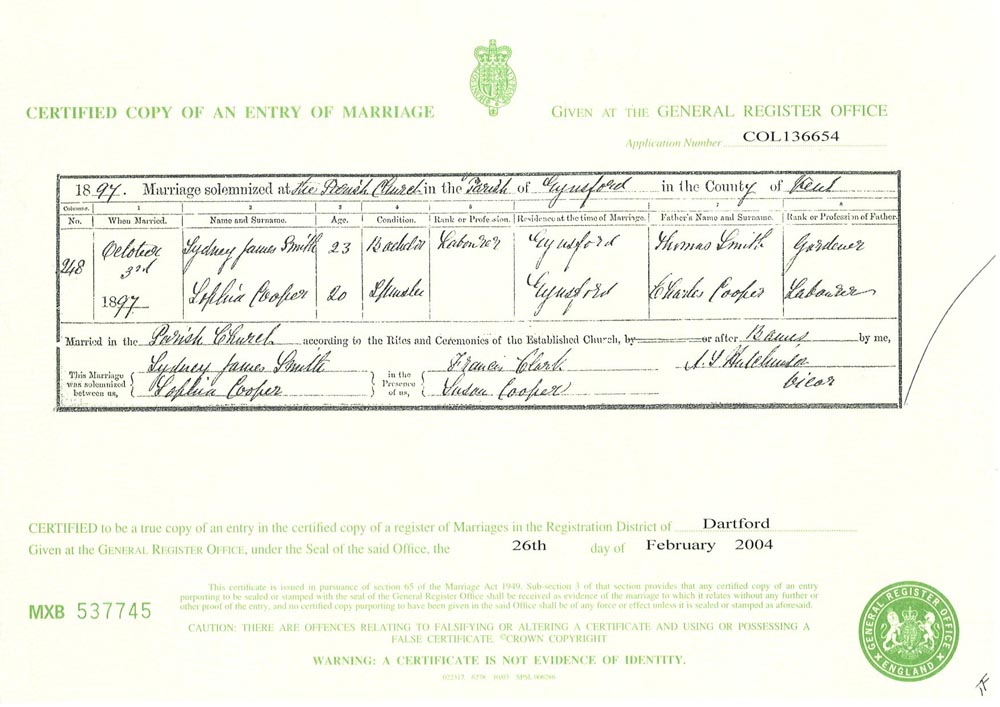 CERTIFIED COPY OF AN ENTRY OF MARRIAGE
GIVEN AT THE GENERAL REGISTER OFFICE
Application Number COL136654
1897. Marriage solemnized at the Parish Church in the Parish of Eynsford in the County of Kent
Columns. 1 2 3 4 5 6 7 8
No. When Married. Name and Surname. Age. Condition. Rank or Profession. Residence at the time of Marriage. Father's Name and Surname. Rank or Profession of Father.
248 October 3rd 1897 Sydney James Smith 23 Bachelor Labourer Eynsford Thomas Smith Gardener
Sophia Cooper 20 Spinster Eynsford Charles Cooper Labourer
Married in the Parish Church according to the Rites and Ceremonies of the Established Church, by or after Banns by me,
This Marriage was solemnized between us, Sydney James Smith Sophia Cooper in the Presence of us, Francis Clark Susan Cooper Vicar
CERTIFIED to be a true copy of an entry in the certified copy of a register of Marriages in the Registration District of Dartford
Given at the GENERAL REGISTER OFFICE, under the Seal of the said Office, the 26th day of February 2004
This certificate is issued in pursuance of section 65 of the Marriage Act 1949. Sub-section 3 of that section provides that any certified copy of an entry
purporting to be sealed or stamped with the seal of the General Register Office shall be received as evidence of the marriage to which it relates without any further or
other proof of the entry, and no certified copy purporting to have been given in the said Office shall be of any force or effect unless it is sealed or stamped as aforesaid.
MXB 537745
CAUTION: THERE ARE OFFENCES RELATING TO FALSIFYING OR ALTERING A CERTIFICATE AND USING OR POSSESSING A
FALSE CERTIFICATE. ©CROWN COPYRIGHT
WARNING: A CERTIFICATE IS NOT EVIDENCE OF IDENTITY.
GENERAL REGISTER OFFICE
ENGLAND